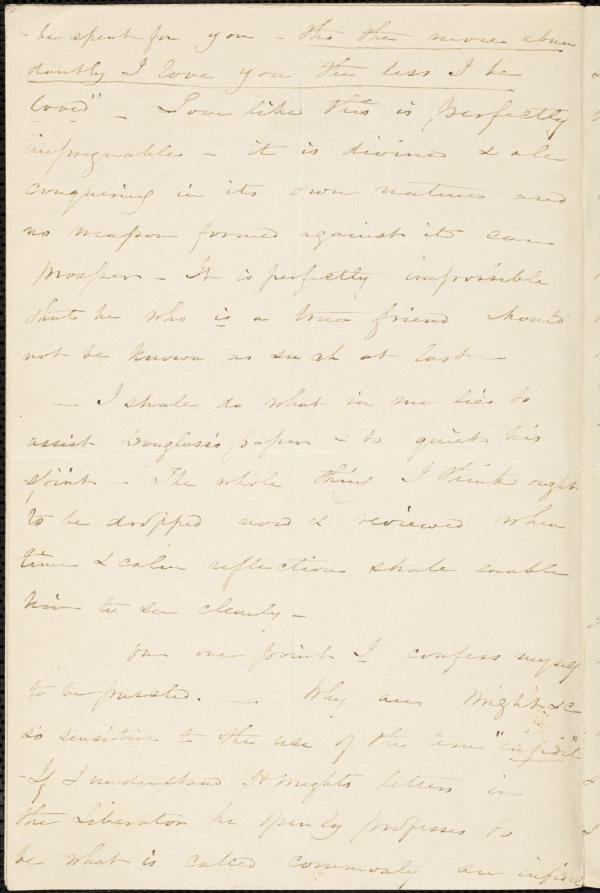 be spent for you - tho the more abun
dantly I love you the less I be
loved" - Love like this is perfectly
impregnable - it is divine & all
conquering in its own nature and
no weapon formed against it can
prosper - It is perfectly impossible
that he who is a true friend should
not be known as such at last -
- I shall do what in me lies to
assist Douglass's paper & to quiet his
spirit - The whole thing I think ought
to be dropped now & reviewed when
time & calm reflection shall enable
him to see clearly -
On one point I confess myself
to be puzzled. - Why are Wright &c
so sensitive to the use of the term "infidel"
- If I understand H Wrights letters in
the Liberator he openly professes to
be what is called commonly an infidel